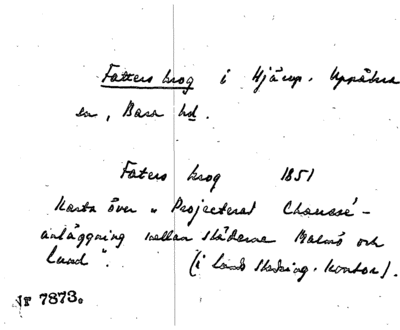 Fatters krog i Hjärup. Uppåkra
sn, Bara hd.
Faters krog 1851
Karta över „Projecterad Chaussé-
anläggning mellan städerne Malmö och
Lund". (i Lands skrifning. kontor).
Nr 7873.